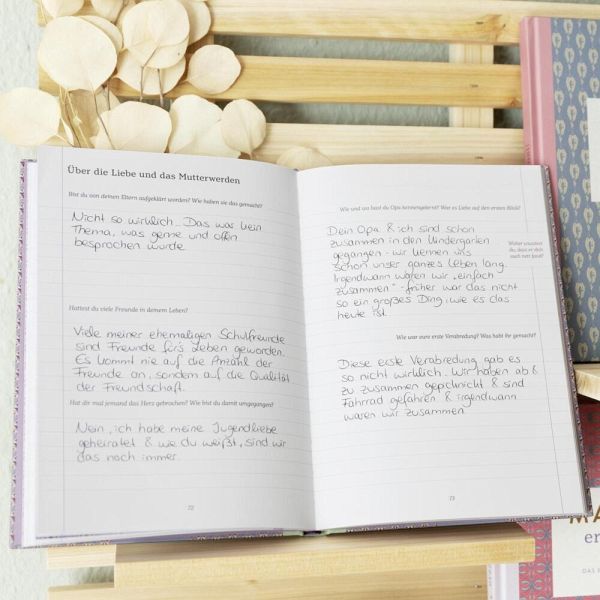 Über die Liebe und das Mutterwerden
Bist du von deinen Eltern aufgeklärt worden? Wie haben sie das gemacht?
Nicht so wirklich. Das war kein
Thema, was gerne und offen
besprochen wurde.
Hattest du viele Freunde in deinem Leben?
Viele meiner ehemaligen Schulfreunde
sind Freunde für's Leben geworden.
Es kommt nie auf die Anzahl der
Freunde an, sondern auf die Qualität
der Freundschaft.
Hat dir mal jemand das Herz gebrochen? Wie bist du damit umgegangen?
Nein, ich habe meine Jugendliebe
geheiratet & wie du weißt, sind wir
das noch immer.
72
Wie und wo hast du Opa kennengelernt? War es Liebe auf den ersten Blick?
Dein Opa & ich sind schon
zusammen in den Kindergarten
gegangen - wir kennen uns
schon unser ganzes Leben lang.
Irgendwann waren wir "einfach
zusammen" - früher war das nicht
so ein großes Ding, wie es das
heute ist.
Woher wusstest
du, dass er dich
auch nett fand?
Wie war eure erste Verabredung? Was habt ihr gemacht?
Diese erste Verabredung gab es
so nicht wirklich. Wir haben ab &
zu zusammen gepicknickt & sind
Fahrrad gefahren & irgendwann
waren wir zusammen.
73
MA
er
DAS